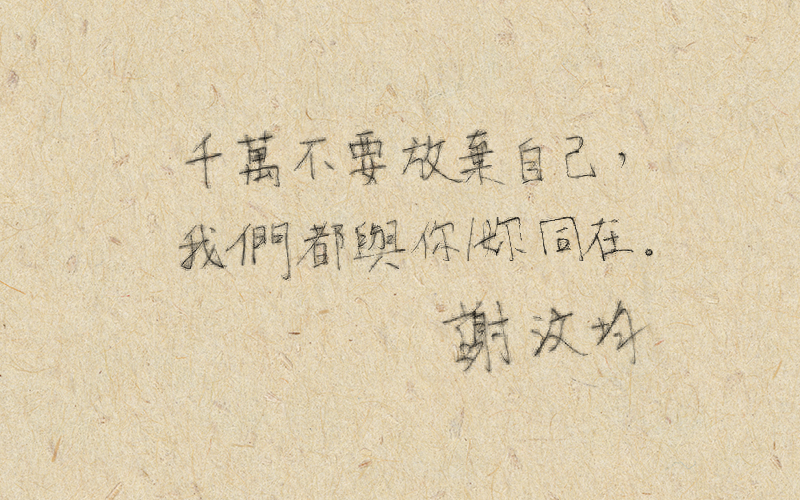 千萬不要放棄自己，
我們都與你/妳同在。
謝汶均